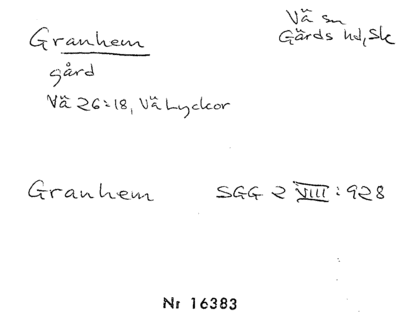 Granhem
Vä sn
Gärds hd, Sk
gård
Vä 26:18, Vä Lyckor
Granhem SGG 2 VIII:928
Nr 16383